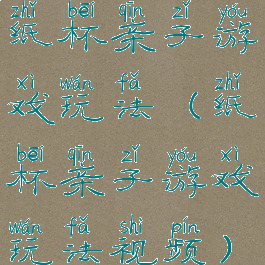 zhǐ bēi qīn zǐ yóu
纸杯亲子游
xì wán fǎ zhǐ
戏玩法（纸
bēi qīn zǐ yóu xì
杯亲子游戏
wán fǎ shì pín
玩法视频）